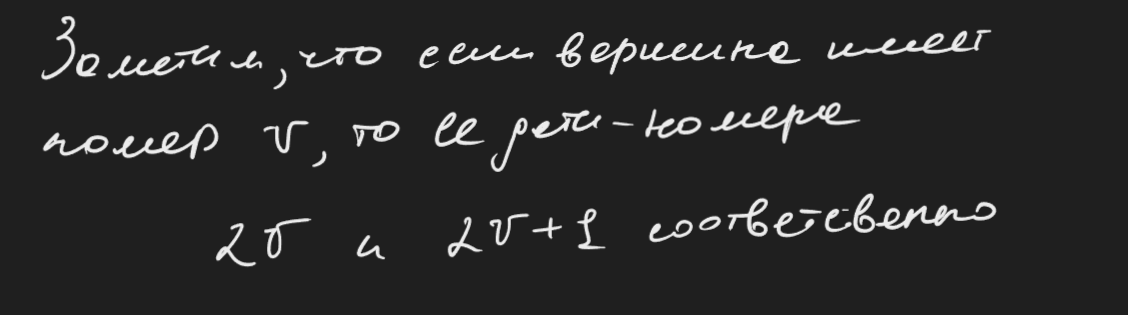 Заметим, что если вершина имеет
номер v, то её дети - номера
2v и 2v+1 соответственно